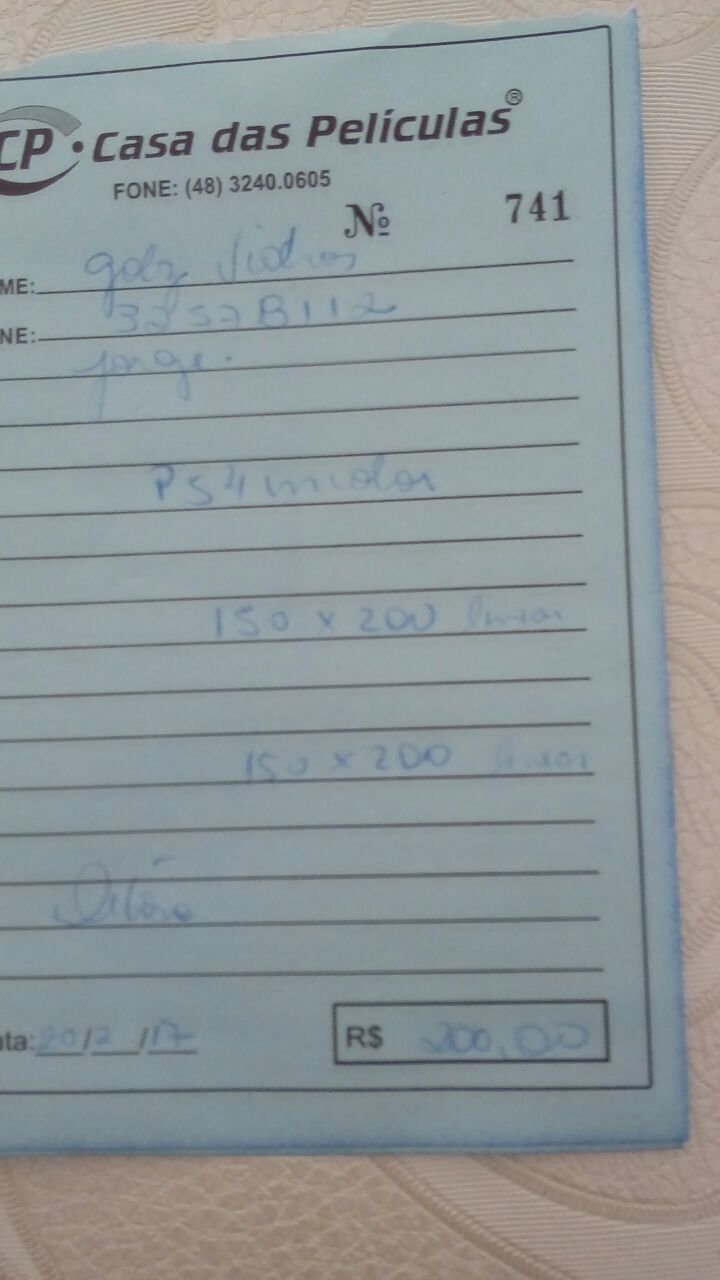 CP • Casa das Películas®
FONE: (48) 3240.0605
Nº 741
ME: Vidros
NE: 3257 8112
Jorge.
PS4 incolor
150 x 200 linear
150 x 200 linear
ata: 20/2/17 R$ 200,00